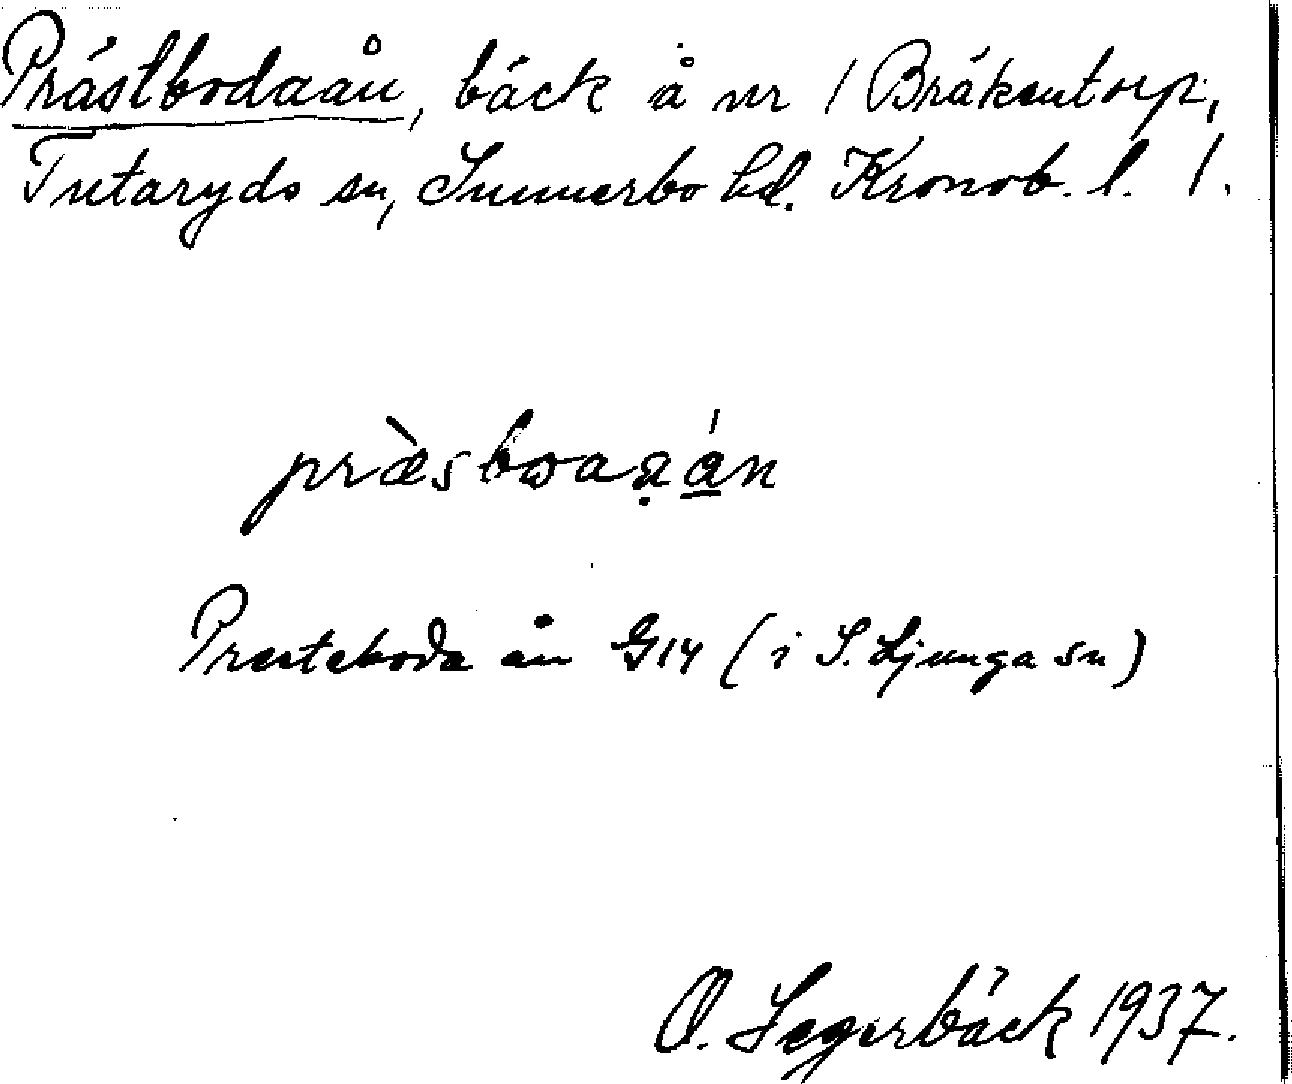 Prästbodaån, bäck å nr 1 Bråkentorp,
Tutaryds sn, Sunnerbo hd. Kronob. l. 1.
præ̀sbωaʀán
Præsteboda ån G14 (i S. Ljunga sn)
O. Segerbäck 1937.